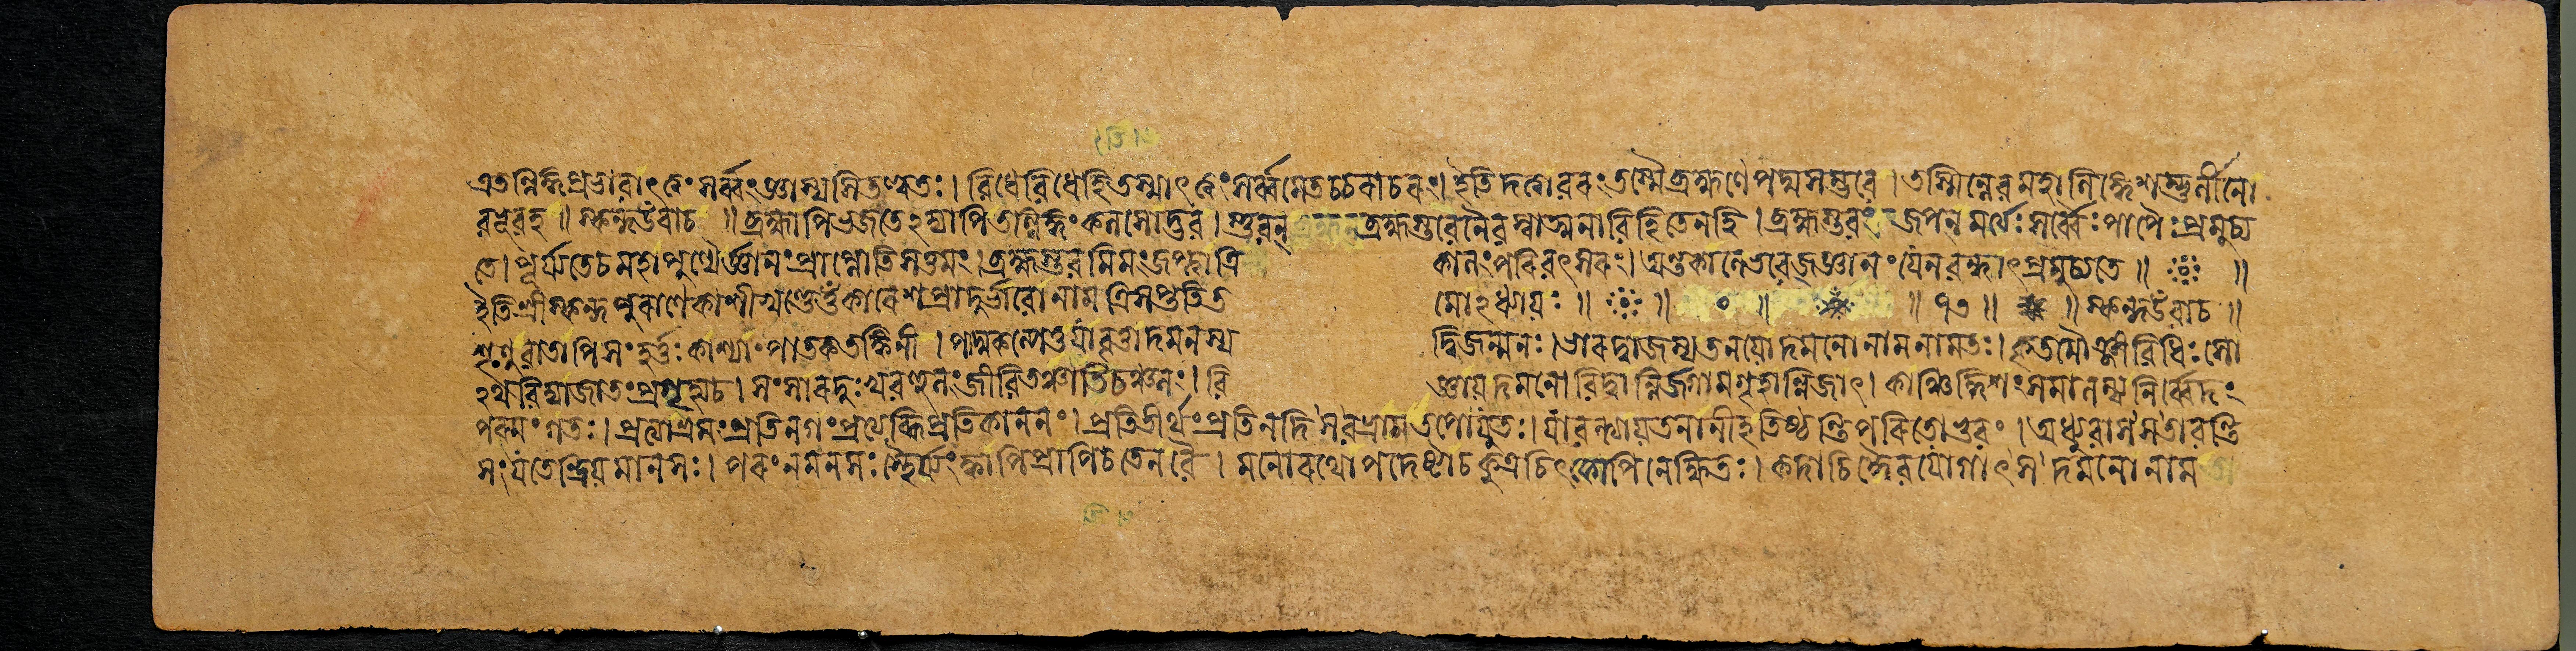 এতল্লিঙ্গপ্রভাবাৎত্বং সর্ব্বং জ্ঞাস্যসিতত্ত্বতঃ। বিধেবিধেহিতস্মাৎত্বং সর্ব্বমেতচ্চরাচরং। ইতিদত্ত্বাবরং তস্মৈব্রহ্মণেপদ্মসম্ভবে। তস্মিন্নেবমহালিঙ্গেশম্ভুর্লীনো
বভূবহ॥ স্কন্দউবাচ॥ ব্রহ্মাপিভজতেঽদ্যাপিতল্লিঙ্গং কলসোদ্ভব। স্তুবন্ ব্রহ্মস্তবেনৈবস্বাত্মনাবিহিতেনহি। ব্রহ্মস্তবং জপন্মর্ত্যঃ সর্ব্বৈঃ পাপৈঃ প্রমুচ্য
তে। পূর্য্যতেচমহাপুণ্যৈর্জ্ঞানং প্রাপ্নোতিসত্তমং। ব্রহ্মস্তবমিমং জপ্ত্বাত্রি কালং পরিবৎসরং। অন্তকালেভবেজ্জ্ঞানং যেনবন্ধাৎপ্রমুচ্যতে॥ ॥
ইতিশ্রীস্কন্দপুরাণেকাশীখণ্ডেওঁকারেশপ্রাদুর্ভাবোনামত্রিসপ্ততিত মোঽধ্যায়ঃ॥ ॥ ০॥ ॥ ৭৩॥ ॥ স্কন্দউবাচ॥
শৃণুবাতাপিসংহর্ত্তঃ কাশ্যাং পাতকতর্জ্জিনী। পদ্মকল্পেতুযাবৃত্তাদমনস্য দ্বিজন্মনঃ। ভারদ্বাজস্যতনয়োদমনোনামনামতঃ। কৃতমৌঞ্জীবিধিঃ সো
ঽথবিদ্যাজাতং প্রগৃহ্যচ। সংসারদুঃখবহুলং জীবিতঞ্চাতিচঞ্চলং। বি জ্ঞায়দমনোবিদ্বান্নির্জগামগৃহান্নিজাৎ। কাঞ্চিদ্দিশং সমালম্ব্যনির্ব্বেদং
পরমং গতঃ। প্রত্যাশ্রমং প্রতিনগং প্রত্যব্ধিপ্রতিকাননং। প্রতিতীর্থং প্রতিনদি সবভ্রামতপোযুতঃ। যাবন্ত্যায়তনানীহতিষ্ঠন্তিপরিতোভুবং। অধ্যুবাসসতাবন্তি
সংযতেন্দ্রিয়মানসঃ। পরং নমনসঃ স্থৈর্য্যং ক্বাপিপ্রাপিচতেনবৈ। মনোরথোপদেষ্টাচকুত্রচিৎকোপিনেক্ষিতঃ। কদাচিদ্দৈবযোগাৎ স দমনোনাম